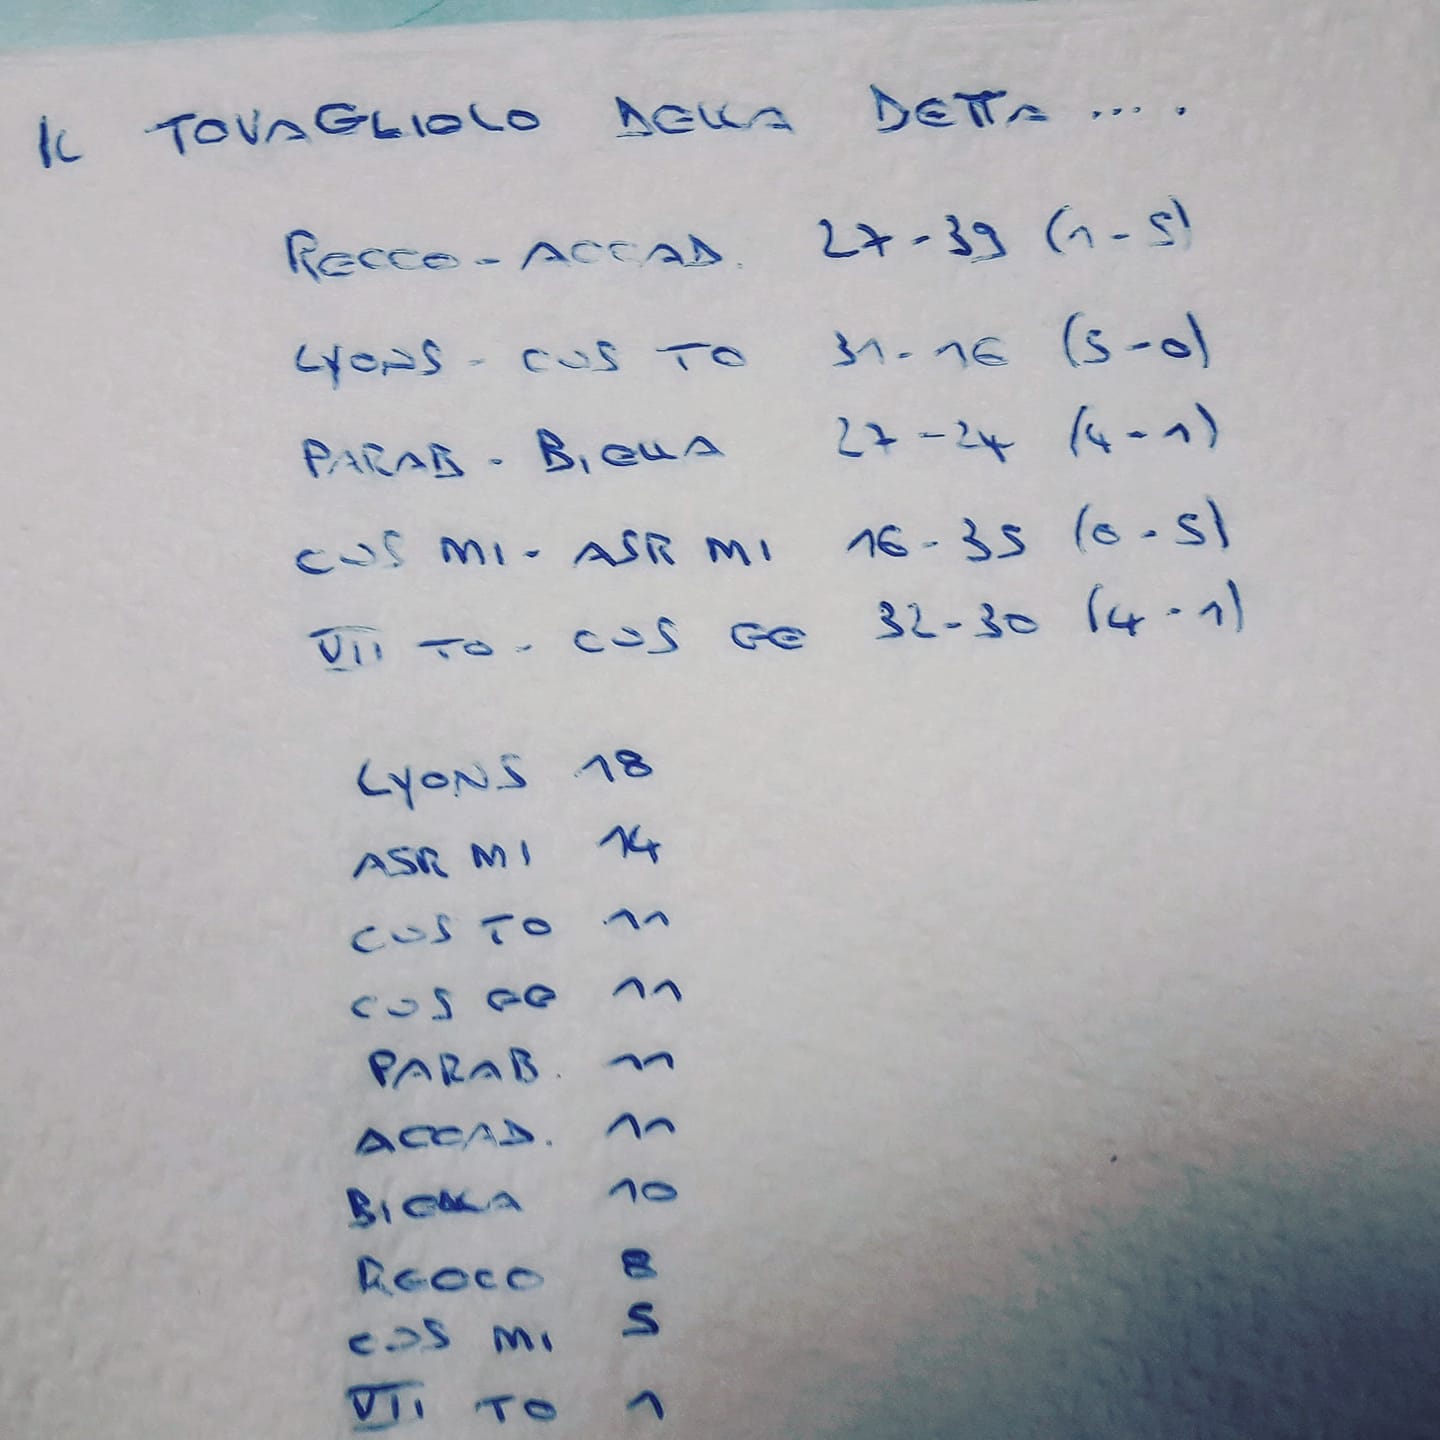 IL TOVAGLIOLO DELLA DETTA ....
RECCO - ACCAD. 27-39 (1-5)
LYONS - CUS TO 31-16 (5-0)
PARAB - BIELLA 27-24 (4-1)
CUS MI - ASR MI 16-35 (0-5)
VII TO - CUS GE 32-30 (4-1)
LYONS 18
ASR MI 14
CUS TO 11
CUS GE 11
PARAB. 11
ACCAD. 11
BIELLA 10
RECCO 8
CUS MI 5
VII TO 1